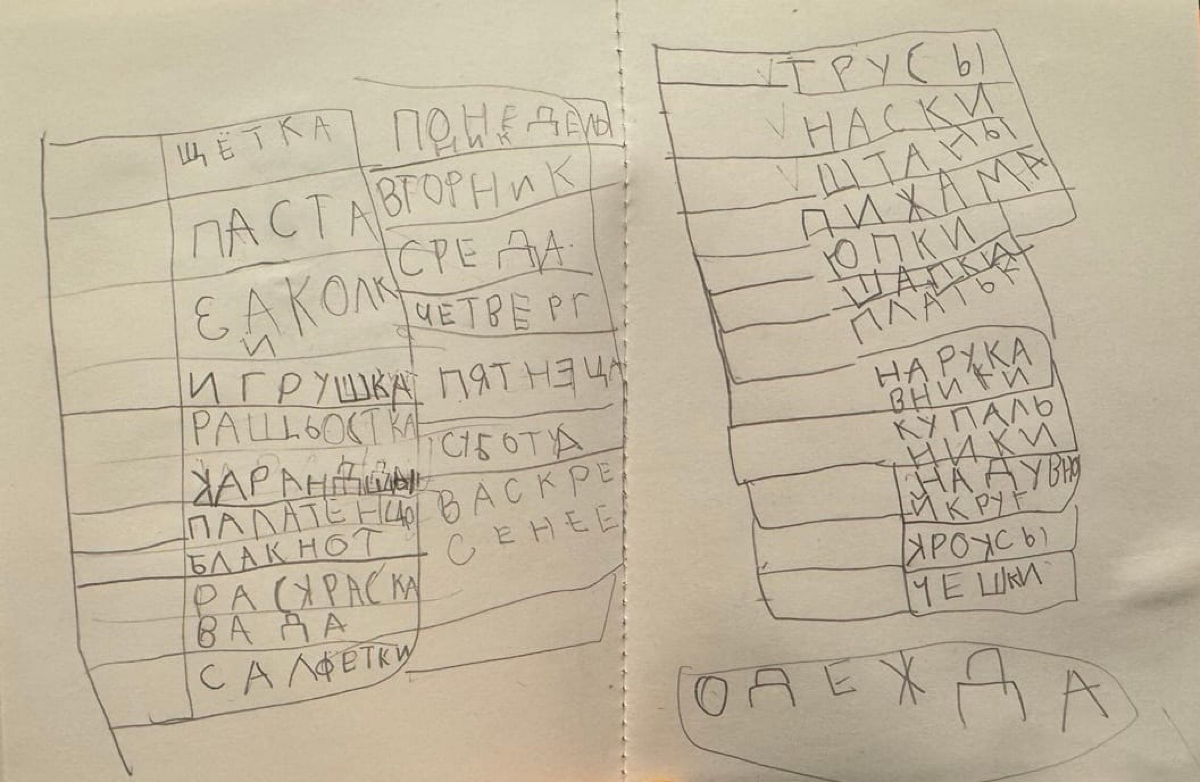 ЩЁТКА
ПАСТА
ЗАКОЛК
И
ИГРУШКА
РАЩЬОСТКА
КАРАНДШЫ
ПАЛАТЕНЦО
БЛАКНОТ
РАСКРАСКА
ВАДА
САЛФЕТКИ
ПОНЕДЕЛЬ
НИК
ВТОРНИК
СРЕДА
ЧЕТВЕРГ
ПЯТНЕЦА
СУБОТА
ВАСКРЕ
СЕНЕЕ
ТРУСЫ
НАСКИ
ШТАНЫ
ПИЖАМА
ЮПКИ
ШАПКИ
ПЛАТЬЕ
НАРУКА
ВНИКИ
КУПАЛЬ
НИКИ
НАДУВНО
Й КРУГ
КРОКСЫ
ЧЕШКИ
ОДЕЖДА